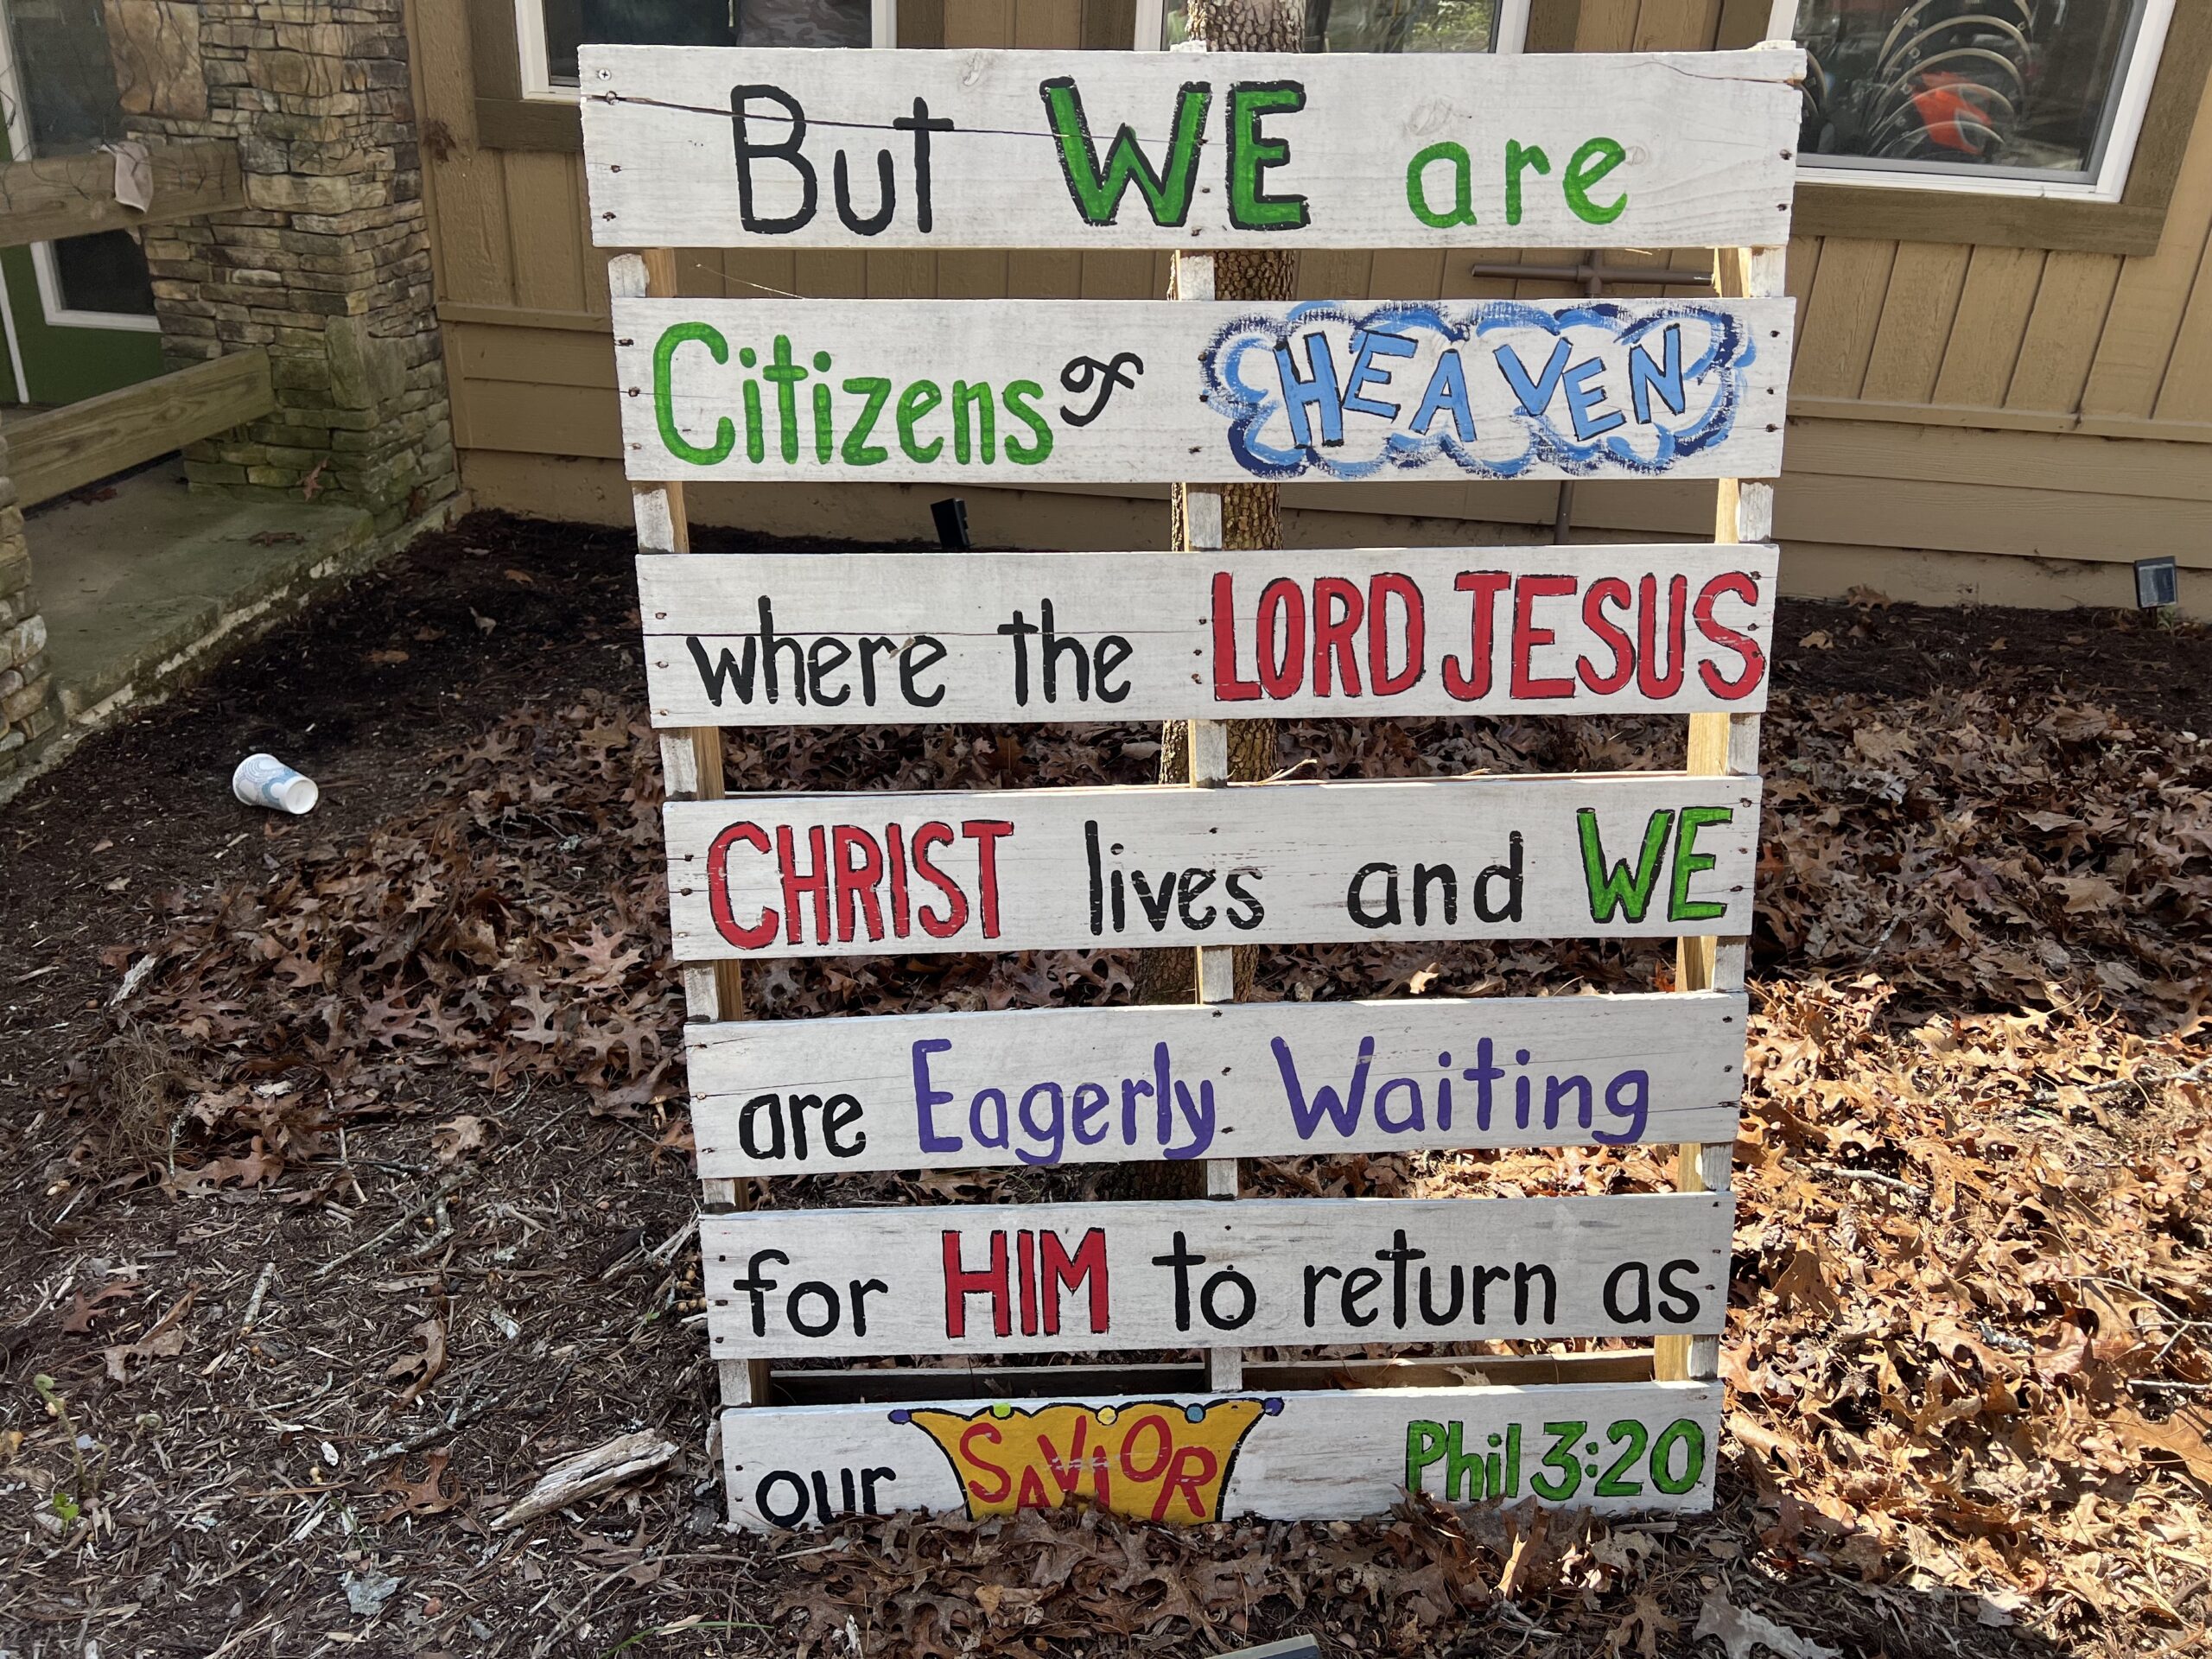 But WE are
Citizens of HEAVEN
where the LORD JESUS
CHRIST lives and WE
are Eagerly Waiting
for HIM to return as
our SAVIOR Phil 3:20